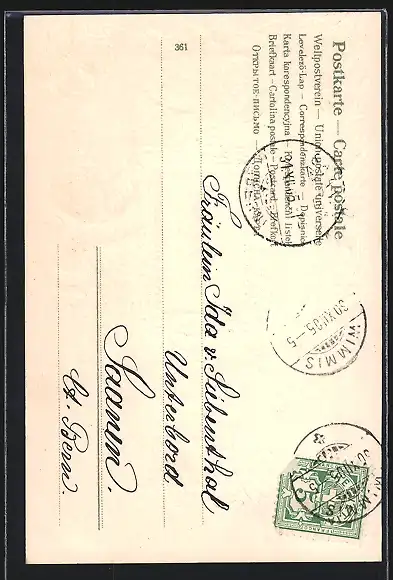 Postkarte — Carte postale
Weltpostverein — Union postale universelle
Levelező-Lap — Correspondenzkarte — Dopisnice
Karta korespondencyjna — Korespondenční lístek
Briefkaart — Cartolina postale — Postcard — Brefkort
Открытое письмо
361
WIMMIS
30.XII.05.-5
WIMMIS
5
Fräulein Ida v. Siebenthal
Unterbord
Saanen.
Ct. Bern.